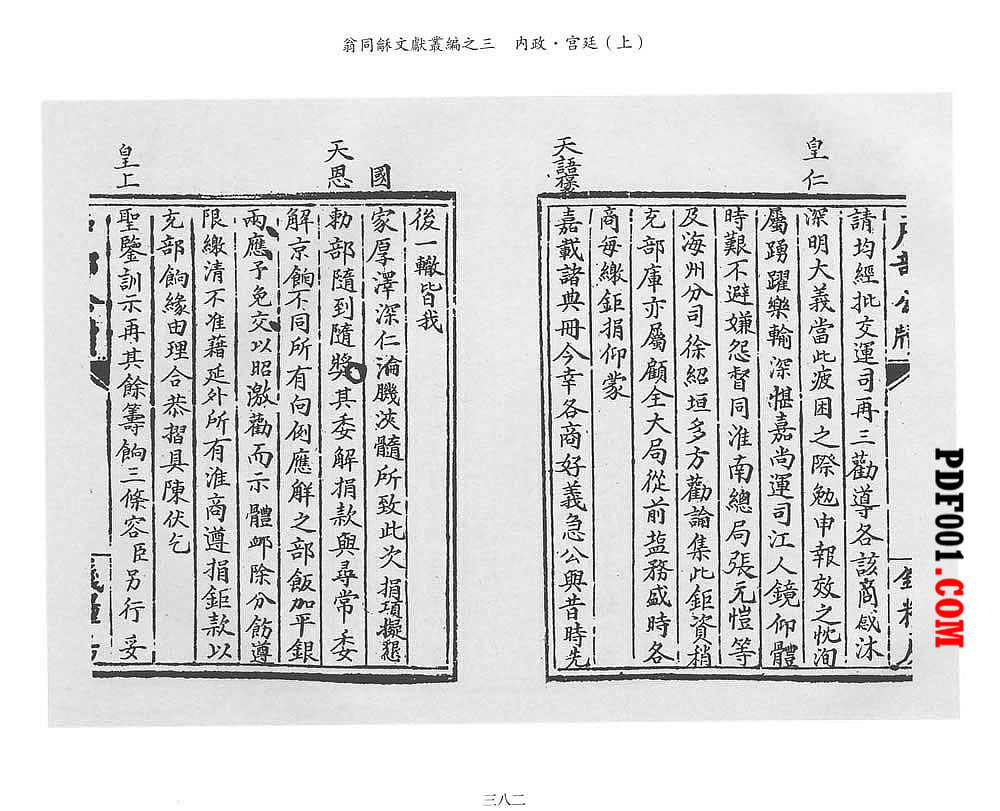 翁同龢文獻叢編之三　內政·宮廷（上）
戶部公牘
請均經批交運司再三勸導各該商感沐
皇仁
深明大義當此疲困之際勉申報效之忱洵
屬踴躍樂輸深堪嘉尚運司江人鏡仰體
時艱不避嫌怨督同淮南總局張元愷等
及海州分司徐紹垣多方勸諭集此鉅資稍
充部庫亦屬顧全大局從前塩務盛時各
商每繳鉅捐仰蒙
天語褒
嘉載諸典冊今幸各商好義急公與昔時先
後一轍皆我
國
家厚澤深仁淪肌浹髓所致此次捐項擬懇
天恩
勅部隨到隨獎其委解捐款與尋常委
解京餉不同所有向例應解之部飯加平銀
兩應予免交以昭激勸而示體卹除分飭遵
限繳清不准藉延外所有淮商遵捐鉅款以
充部餉緣由理合恭摺具陳伏乞
皇上
聖鑒訓示再其餘籌餉三條容臣另行妥
三八二
PDF001.COM